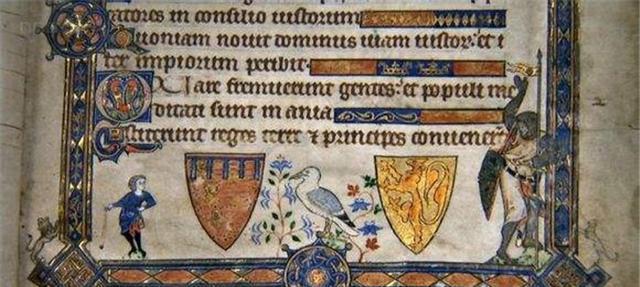 catores in consilio iustorum
Quoniam nouit dominus uiam iustor: et i
ter impiorum peribit.
Quare fremuerunt gentes: et populi me
ditati sunt inania
Astiterunt reges terre ⁊ principes conuener